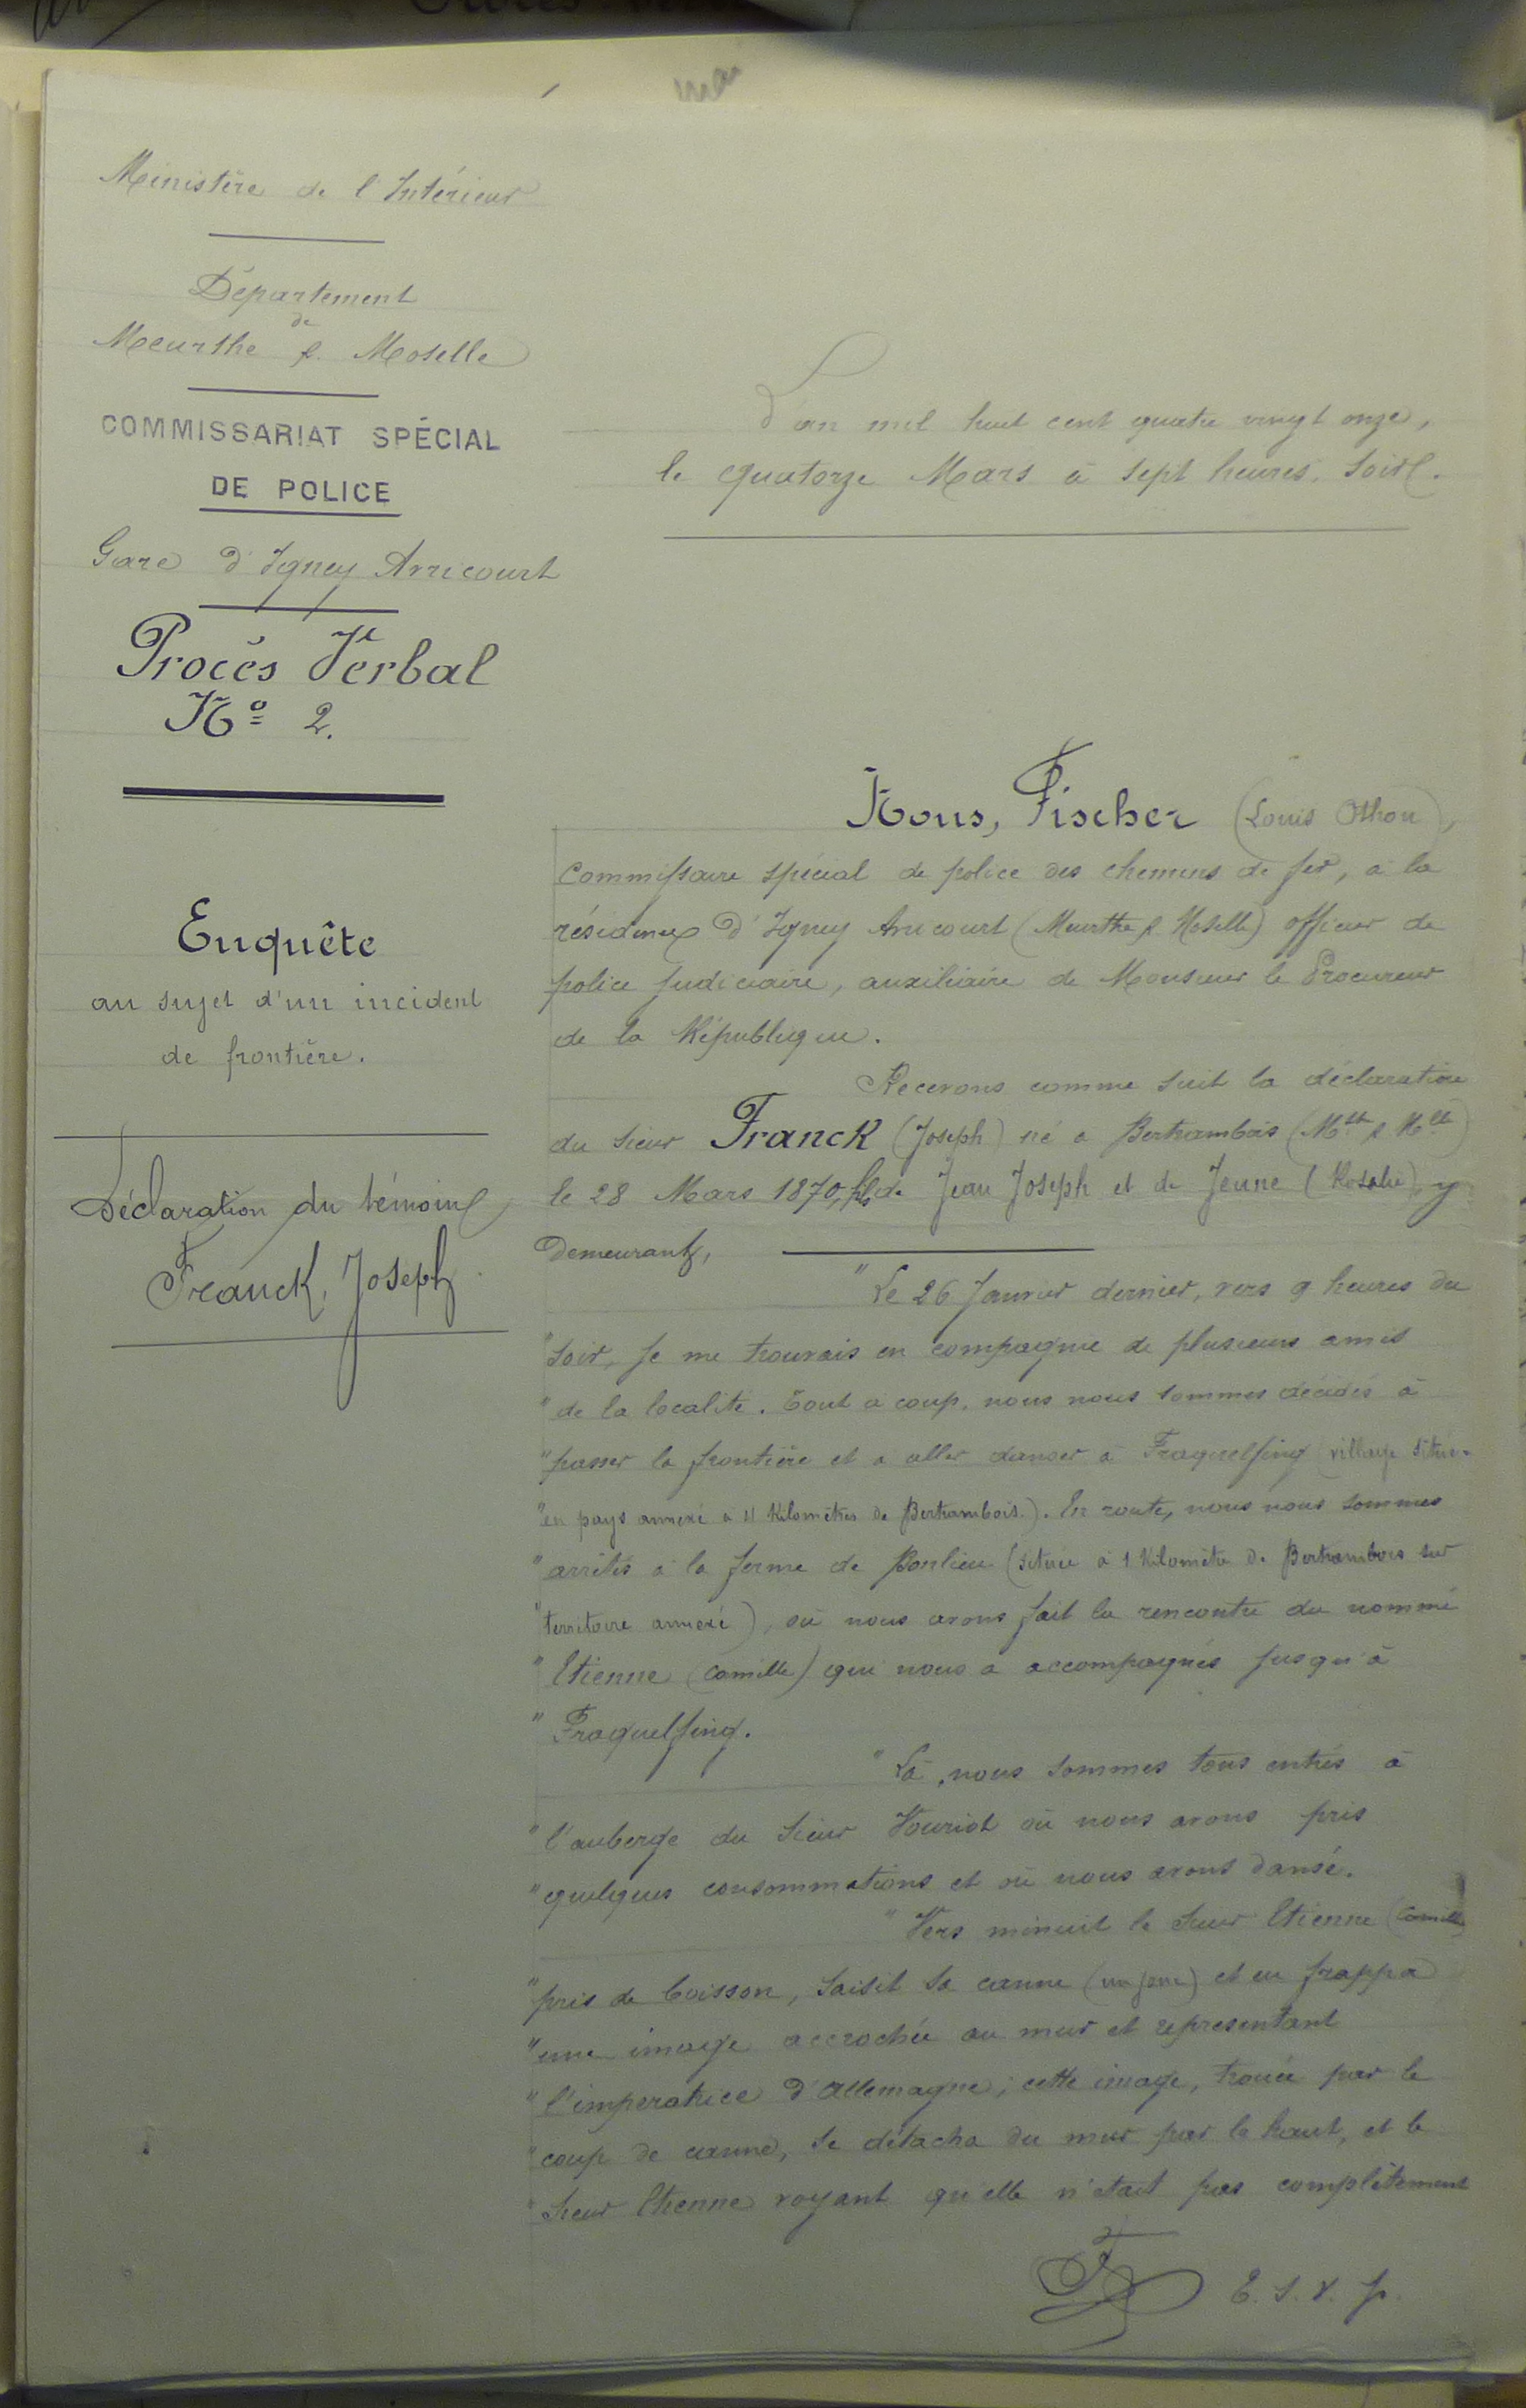 Ministère de l'Intérieur
Département
de
Meurthe & Moselle
COMMISSARIAT SPÉCIAL
DE POLICE
Gare d'Igney Avricourt
Procès Verbal
No 2.
Enquête
au sujet d'un incident
de frontière.
Déclaration du témoin
Franck, Joseph
L'an mil huit cent quatre vingt onze,
le quatorze Mars à sept heures soir.
Nous, Fischer (Louis Othon),
Commissaire spécial de police des chemins de fer, à la
résidence d'Igney Avricourt (Meurthe & Moselle) officier de
police judiciaire, auxiliaire de Monsieur le Procureur
de la République.
Recevons comme suit la déclaration
du sieur Franck (Joseph) né à Bertrambois (Mthe & Mlle)
le 28 Mars 1870, fils de Jean Joseph et de Jeune (Rosalie), y
demeurant,
" Le 26 Janvier dernier, vers 9 heures du
" soir, je me trouvais en compagnie de plusieurs amis
" de la localité. Tout à coup, nous nous sommes décidés à
" passer la frontière et à aller danser à Fraquelfing (village situé
" en pays annexé à 4 Kilomètres de Bertrambois.). En route, nous nous sommes
" arrêtés à la ferme de Bonlieu (située à 1 Kilomètre de Bertrambois sur
" territoire annexé), où nous avons fait la rencontre du nommé
" Etienne (Camille) qui nous a accompagnés jusqu'à
" Fraquelfing.
" Là, nous sommes tous entrés à
" l'auberge du sieur Vouriot où nous avons pris
" quelques consommations et où nous avons dansé.
" Vers minuit le sieur Etienne (Camille)
" pris de boisson, saisit sa canne (un jonc) et en frappa
" une image accrochée au mur et représentant
" l'impératrice d'Allemagne; cette image, trouée par le
" coup de canne, se détacha du mur par le haut, et le
" sieur Etienne voyant qu'elle n'était pas complètement
T. S. V. p.